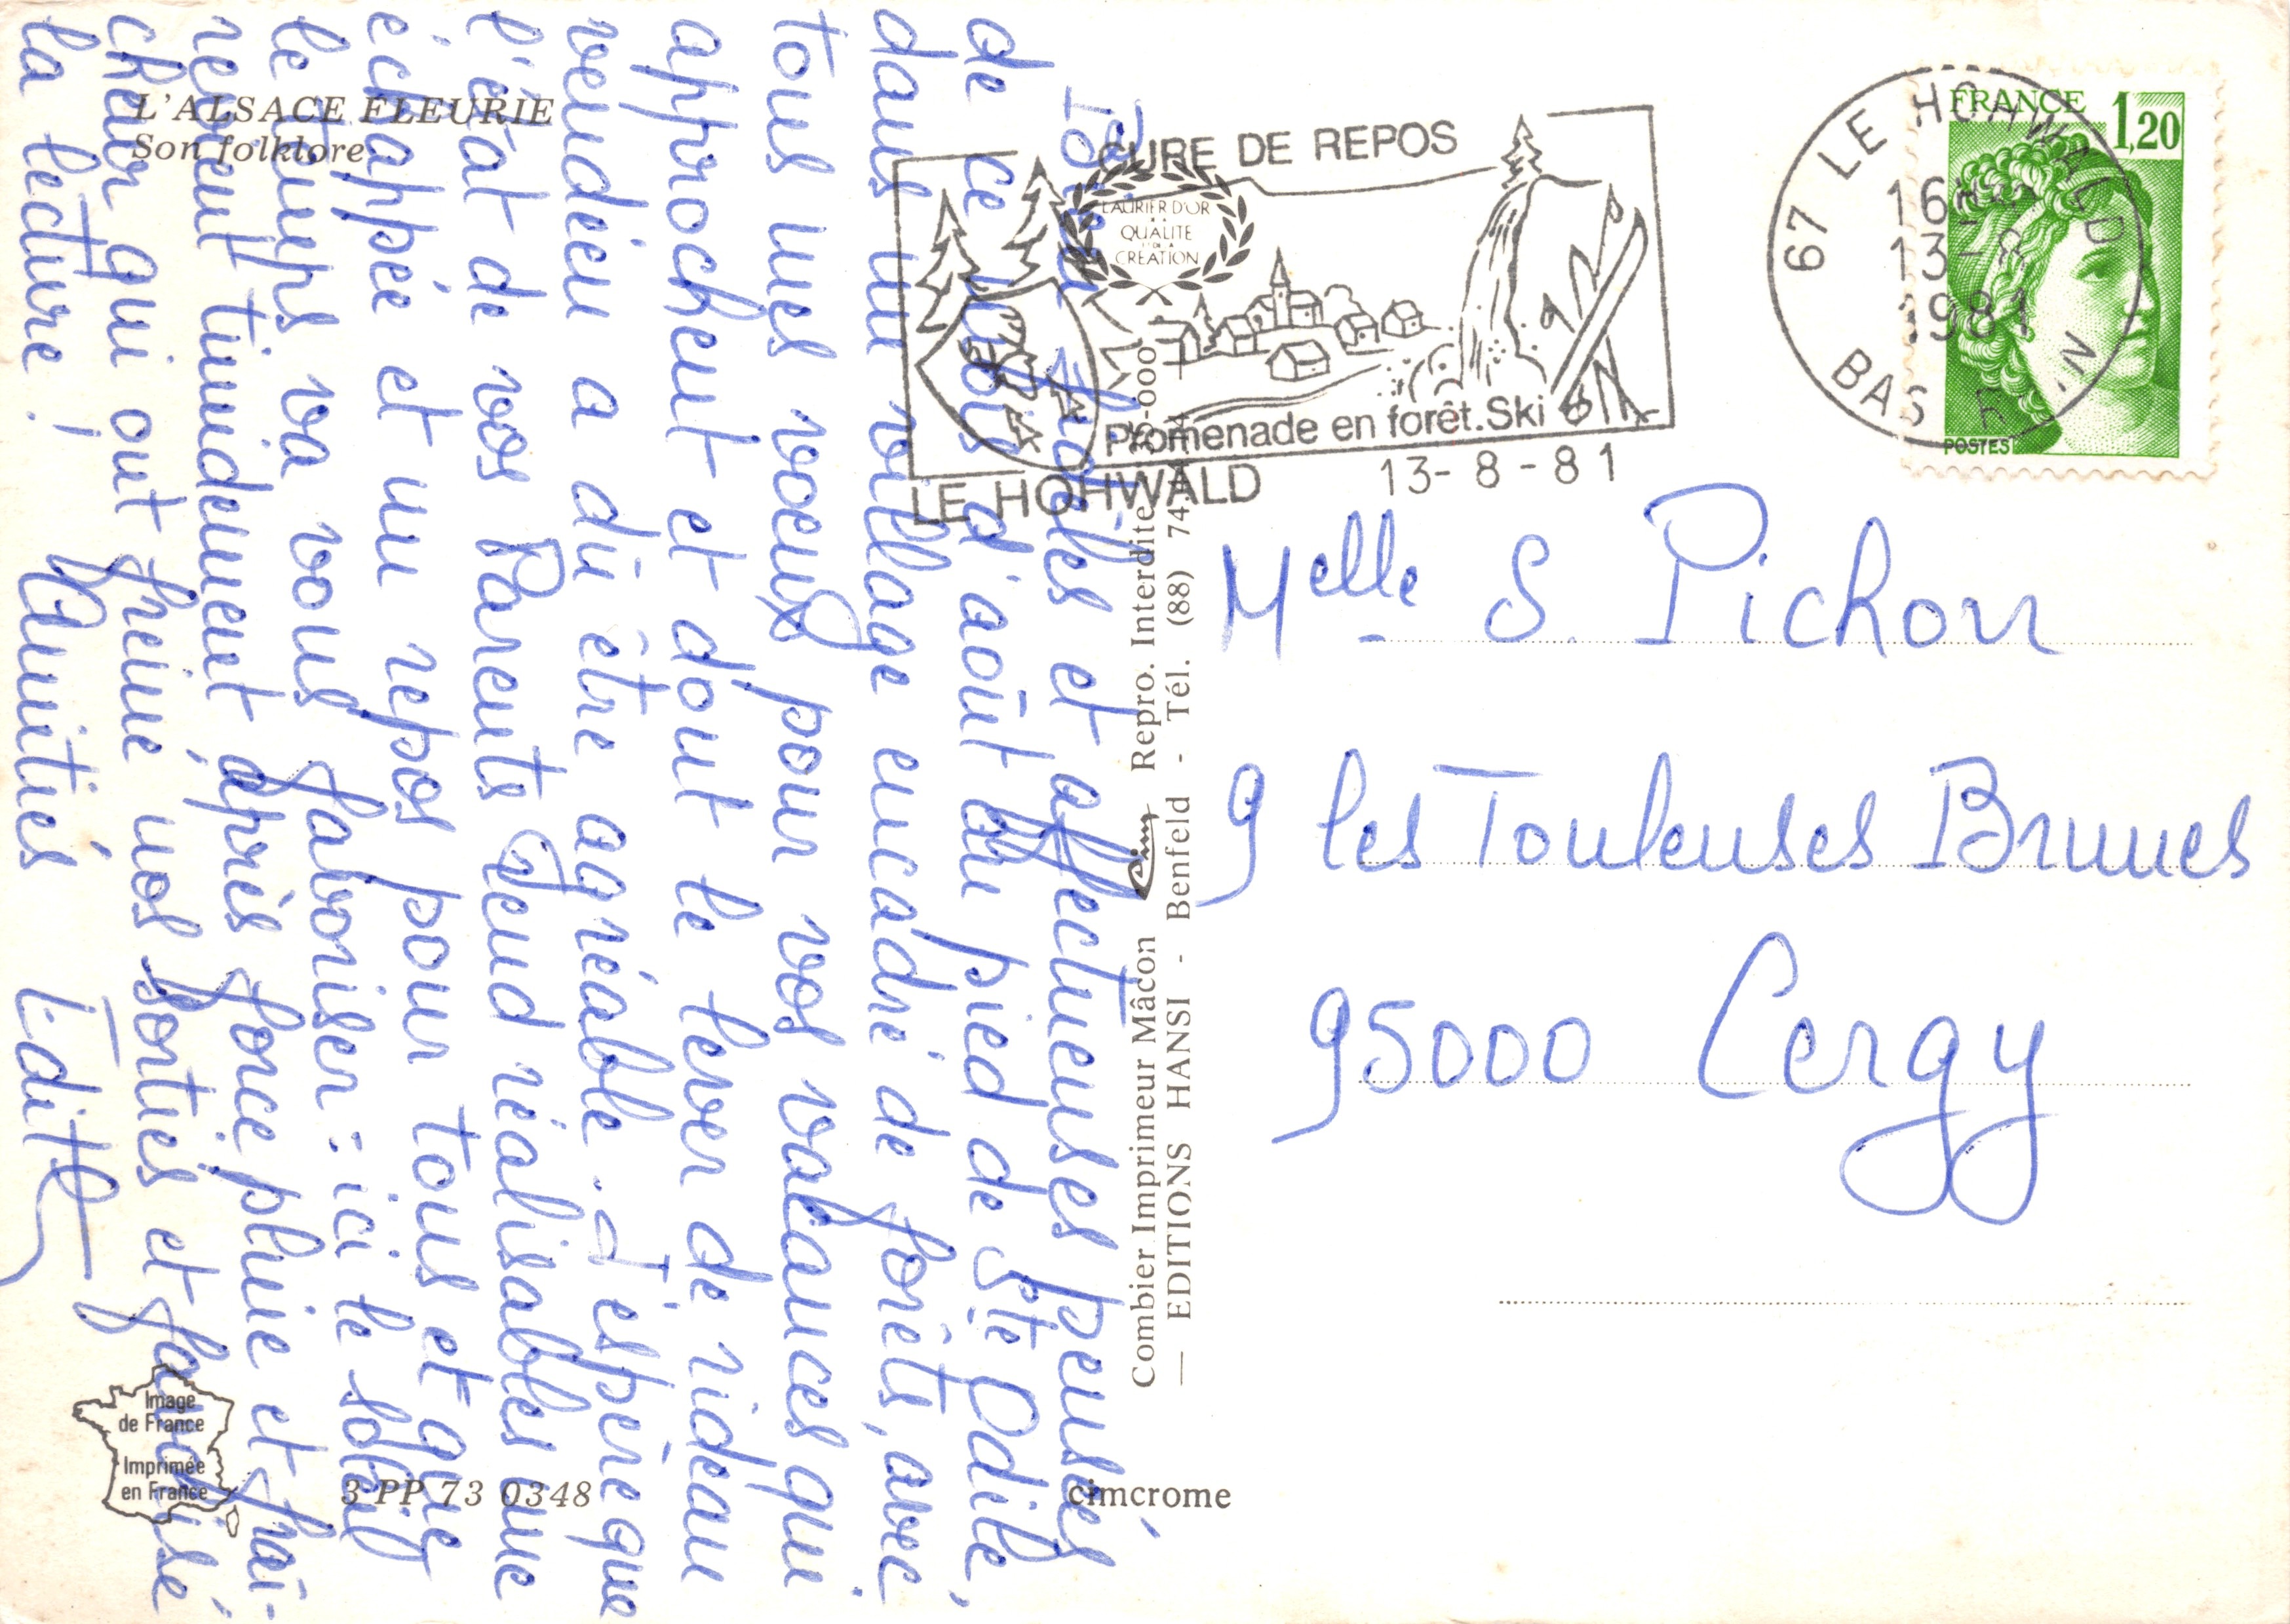 L'ALSACE FLEURIE
Son folklore
Bien fidèles et affectueuses pensées
de ce mois d'août au pied de Ste Odile,
dans un village encadré de forêts, avec
tous mes voeux pour vos vacances qui
approchent et dont le lever de rideau
vendéen a dû être agréable. J'espère que
l'état de vos Parents rend réalisables une
échappée et un repos pour tous et que
le temps va vous favoriser : ici le soleil
revient timidement après force pluie et fraî-
cheur qui ont freiné nos sorties et favorisé
la lecture ! Amitiés Edith
Image
de France
Imprimée
en France
3 PP 73 0348
cimcrome
Combier Imprimeur Mâcon Cim Repro. Interdite
— EDITIONS HANSI - Benfeld - Tél. (88) 74
CURE DE REPOS
LAURIER D'OR
QUALITE
CREATION
Promenade en forêt. Ski
LE HOHWALD
13-8-81
67 LE HOHWALD
16H
13-8
1981
BAS RHIN
FRANCE
1,20
POSTES
Melle S. Pichon
9 les Touleuses Brunes
95000 Cergy